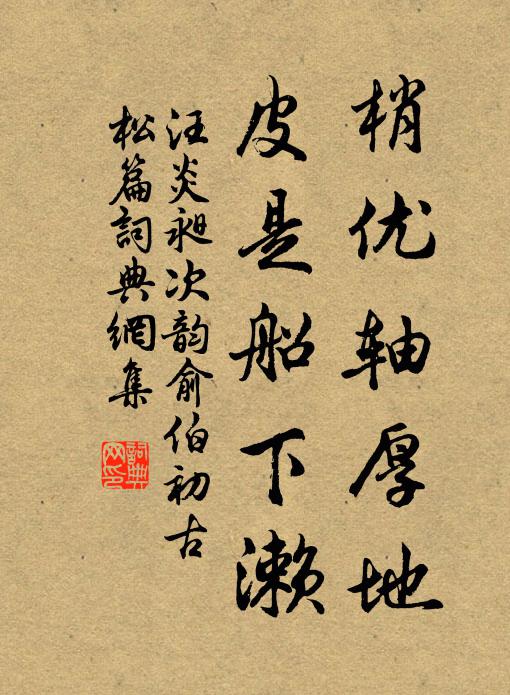 梢优轴厚地
皮是船下濑
汪炎昶次韵俞伯初古
松篇詞典網集
詞典
网印